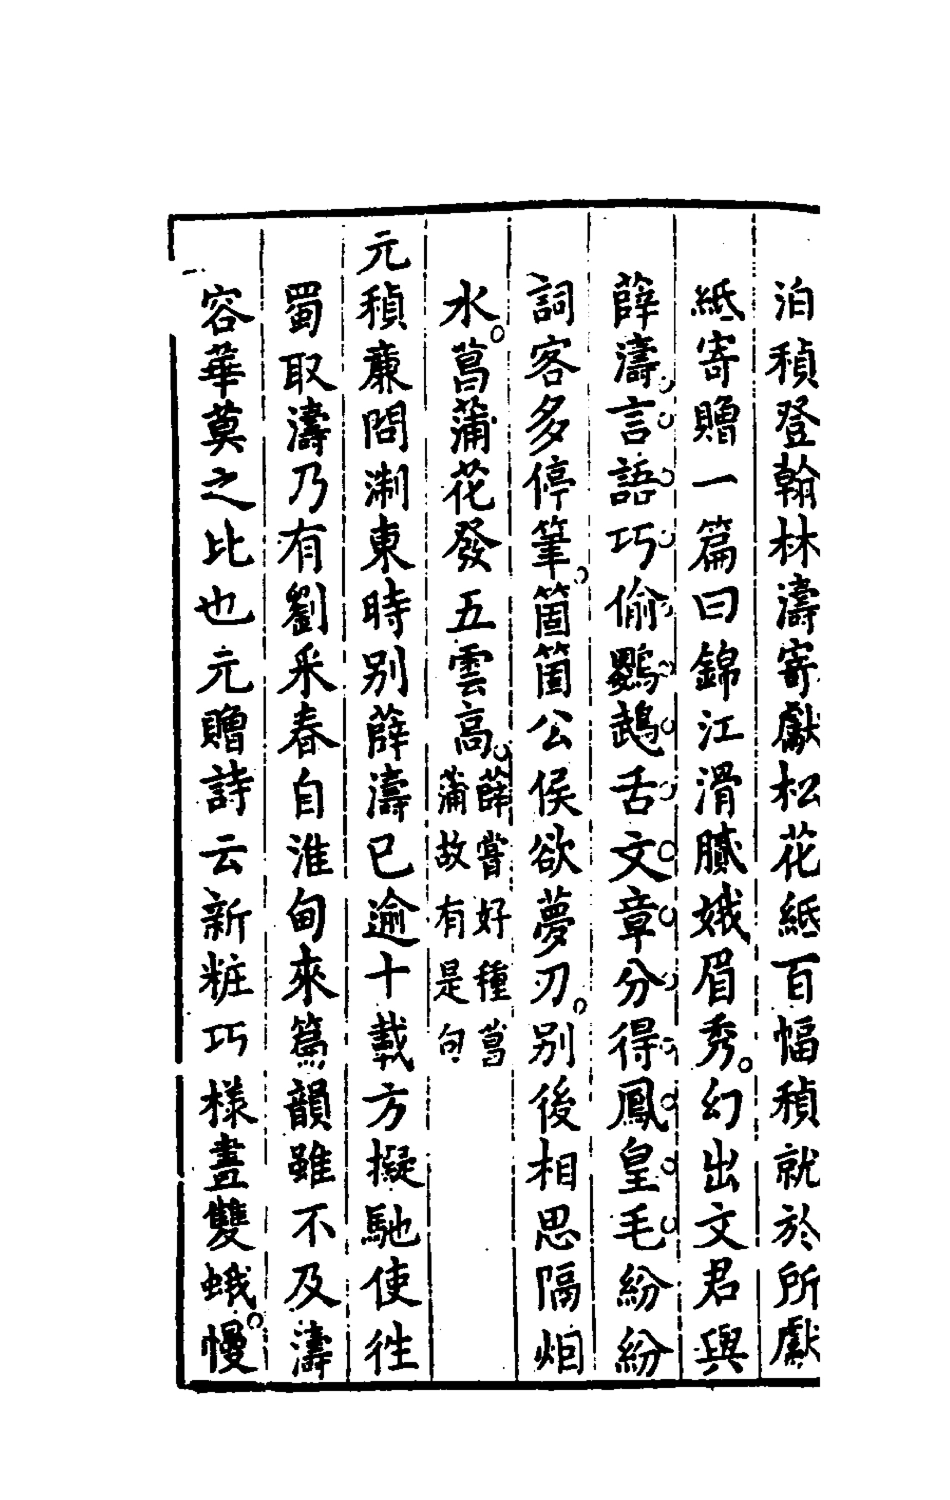 泊稹登翰林濤寄獻松花紙百幅稹就於所獻
紙寄贈一篇曰錦江滑膩娥眉秀幻出文君與
薛濤言語巧偷鸚鵡舌文章分得鳳皇毛紛紛
詞客多停筆箇箇公侯欲夢刀別後相思隔烟
水菖蒲花發五雲高薛嘗好種菖
蒲故有是句
元稹亷問淛東時別薛濤已逾十載方擬馳使往
蜀取濤乃有劉采春自淮甸來篇韻雖不及濤
容華莫之比也元贈詩云新粧巧樣畫雙蛾慢